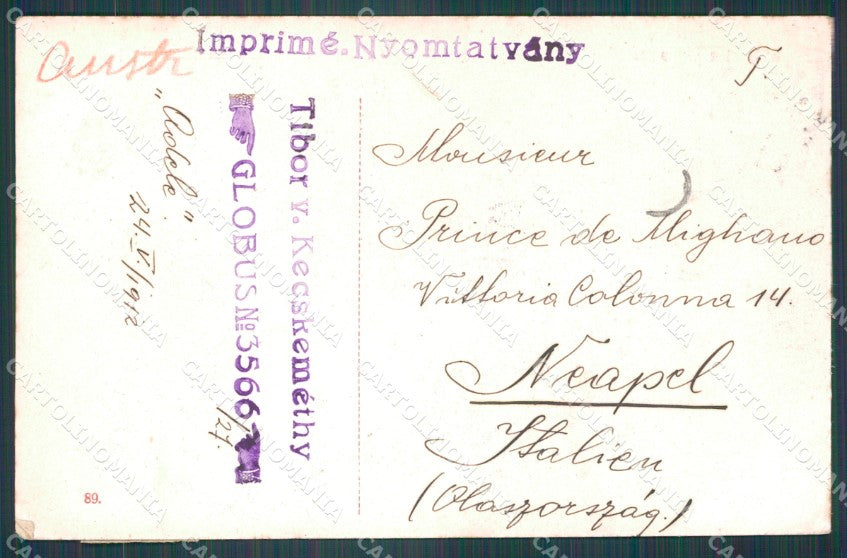 Imprimé. Nyomtatvány
Austr
T.
"Adele"
24. V. /1912
Tibor v. Kecskeméthy
GLOBUS No 3566
1/27.
Monsieur
Prince de Mighano
Vittoria Colonna 14.
Neapel
Italien
(Olaszország.)
89.
CARTOLINOMANIA